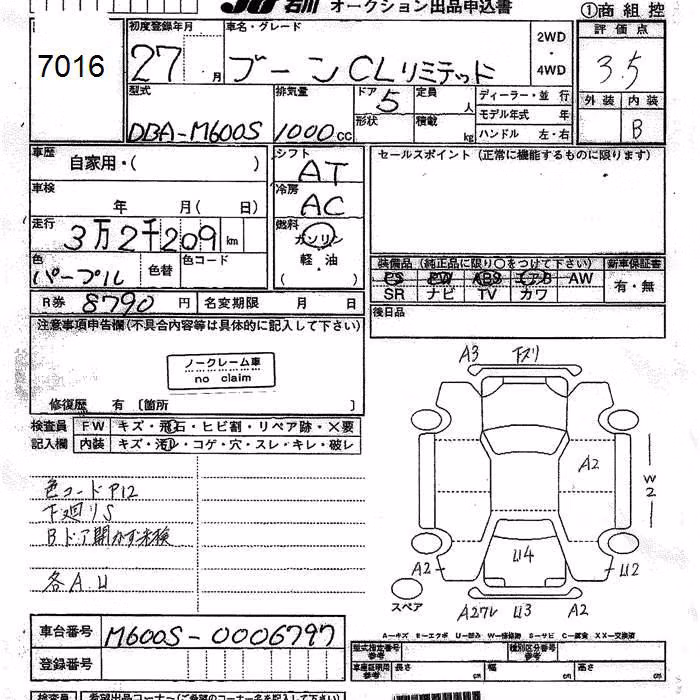 JU 石川 オークション出品申込書
①商 組 控
7016
初度登録年月 車名・グレード 2WD・4WD 評価点
27月 ブーン CLリミテッド 3.5
型式 排気量 ドア 定員 人 ディーラー・並 行 外装 内装
DBA-M600S 1000cc 5 形状 積載 kg モデル年式 年 B
ハンドル 左・右
車歴 自家用・( ) シフト AT セールスポイント (正常に機能するものに限ります)
車検 年 月( 日) 冷房 AC
走行 3万2千209km 燃料 ガソリン 軽・油
色 パープル 色替 色コード 装備品 (純正品に限り○をつけて下さい) 新車保証書
PS PW ABS エアB AW 有・無
SR ナビ TV カワ
R券 8790円 名変期限 月 日 後日品
注意事項申告欄(不具合内容等は具体的に記入して下さい)
ノークレーム車
no claim
修復歴 有 [箇所 ]
検査員 FW キズ・飛石・ヒビ割・リペア跡・×要
記入欄 内装 キズ・汚レ・コゲ・穴・スレ・キレ・破レ
A3 下ズリ
A2
W2
色コードP12
下廻りS
Bドア開かず未検
各A.U
U4
A2 U2
スペア
A27レ U3 A2
車台番号 M600S-0006797
A-キズ E-エクボ U-凹み W-補修跡 S-サビ C-腐食 XX-交換済
登録番号
型式指定番号 参考 種別区分番号 参考
車庫証明用 参考 長さ cm 幅 cm 高さ cm
検査員 希望出品コーナー(ご希望のコーナー名をご記入下さい)